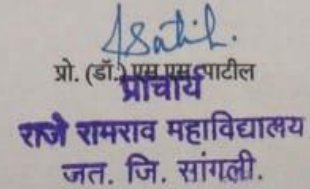 प्रो. (डॉ.) एस एस पाटील
प्राचार्य
राजे रामराव महाविद्यालय
जत. जि. सांगली.